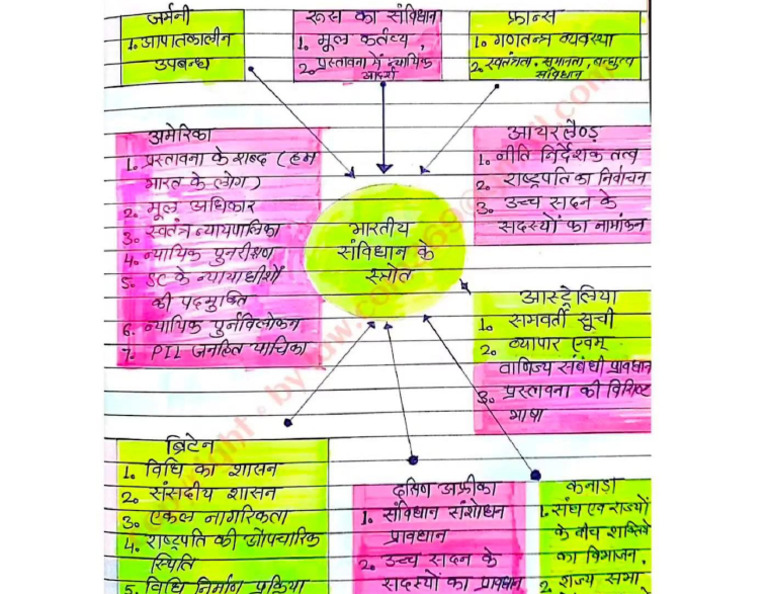 जर्मनी
1. आपातकालीन
उपबन्ध
रूस का संविधान
1. मूल कर्तव्य,
2. प्रस्तावना में न्यायिक
आदर्श
फ्रान्स
1. गणतन्त्र व्यवस्था
2. स्वतंत्रता, समानता, बन्धुत्व
संविधान
अमेरिका
1. प्रस्तावना के शब्द (हम
भारत के लोग)
2. मूल अधिकार
3. स्वतंत्र न्यायपालिका
4. न्यायिक पुनरीक्षण
5. SC के न्यायाधीशों
की पदमुक्ति
6. न्यायिक पुर्नविलोकन
7. PIL जनहित याचिका
भारतीय
संविधान के
स्त्रोत
आयरलैण्ड
1. नीति निर्देशक तत्व
2. राष्ट्रपति का निर्वाचन
3. उच्च सदन के
सदस्यों का नामांकन
आस्ट्रेलिया
1. समवर्ती सूची
2. व्यापार एवम्
वाणिज्य संबंधी प्रावधान
3. प्रस्तावना की विशिष्ट
भाषा
ब्रिटेन
1. विधि का शासन
2. संसदीय शासन
3. एकल नागरिकता
4. राष्ट्रपति की औपचारिक
स्थिति
5. विधि निर्माण प्रक्रिया
दक्षिण अफ्रीका
1. संविधान संशोधन
प्रावधान
2. उच्च सदन के
सदस्यों का प्रावधान
कनाडा
1. संघ एवं राज्यों
के बीच शक्तियों
का विभाजन,
2. राज्य सभा